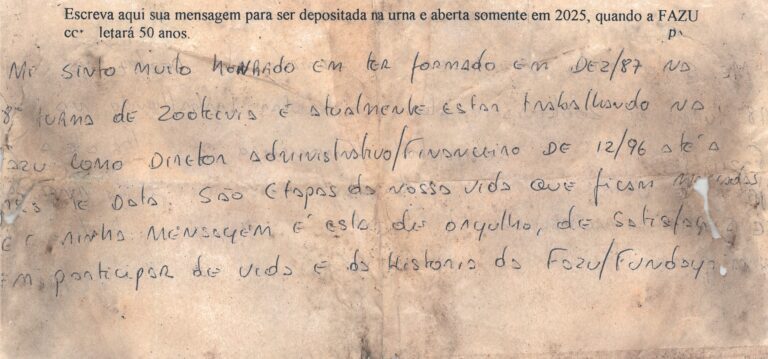 Escreva aqui sua mensagem para ser depositada na urna e aberta somente em 2025, quando a FAZU
letará 50 anos.
Me sinto muito honrado em ter formado em DEZ/87 na
8ª turma de Zootecnia e atualmente estar trabalhando na
FAZU como Diretor Administrativo/Financeiro DE 12/96 até a
Data. São Etapas da nossa vida que ficam marcadas
minha mensagem é esta, de orgulho, de satisfaç
em participar de vida e da Historia da Fazu/Fundaç